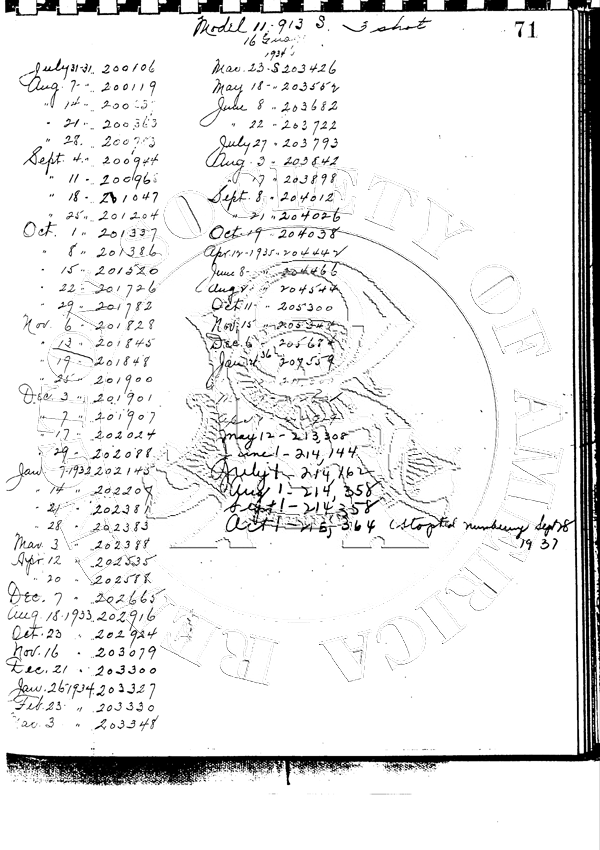 Model 11-913 S. 3 shot
16 Guage
1934's
71
July 31-31. 200106
Aug. 7 - " 200119
" 14 - "
" 21 - " 200363
" 28. "
Sept. 4 " 200944
" 11 - 200968
" 18 - 201047
" 25 " 201204
Oct. 1 " 201337
" 8 " 201386
" 15 - 201520
" 22 - 201726
" 29 - 201782
Nov. 6 - 201828
" 13 " 201845
19 - 201848
" 25 " 201900
Dec. 3 " 201901
" 7 " 201907
" 17 - 202024
" 29 - 202088
Jan. 7-1932 202145
" 14 " 202207
" 21 " 202381
" 28 " 202383
Mar. 3 " 202388
Apr. 12 " 202535
" 20 " 202588
Dec. 7 " 202665
Aug. 18-1933. 202916
Oct. 23 " 202924
Nov. 16 " 203079
Dec. 21 " 203300
Jan. 26-1934 203327
Feb. 23 " 203330
Mar. 3 " 203348
Mar. 23-S 203426
May 18 - " 203552
June 8 " 203682
" 22 - 203722
July 27 " 203793
Aug. 3 " 203842
" 17 " 203898
Sept. 8 - 204012
" 21 " 204026
Oct. 19 - 204038
Apr. 12-1935-204442
June 8 - " 204466
Aug " 204544
Oct. 11 - " 205300
Nov. 15 "
Dec. 6 - 205684
Jan 36 207559
May 12 - 213,308
June 1 - 214,144
July 1 - 214,162
Aug 1 - 214,358
Sept 1 - 214,358
Oct 1 - 215,364 (Stopted numbering Sept 28
1937
SOCIETY OF AMERICA